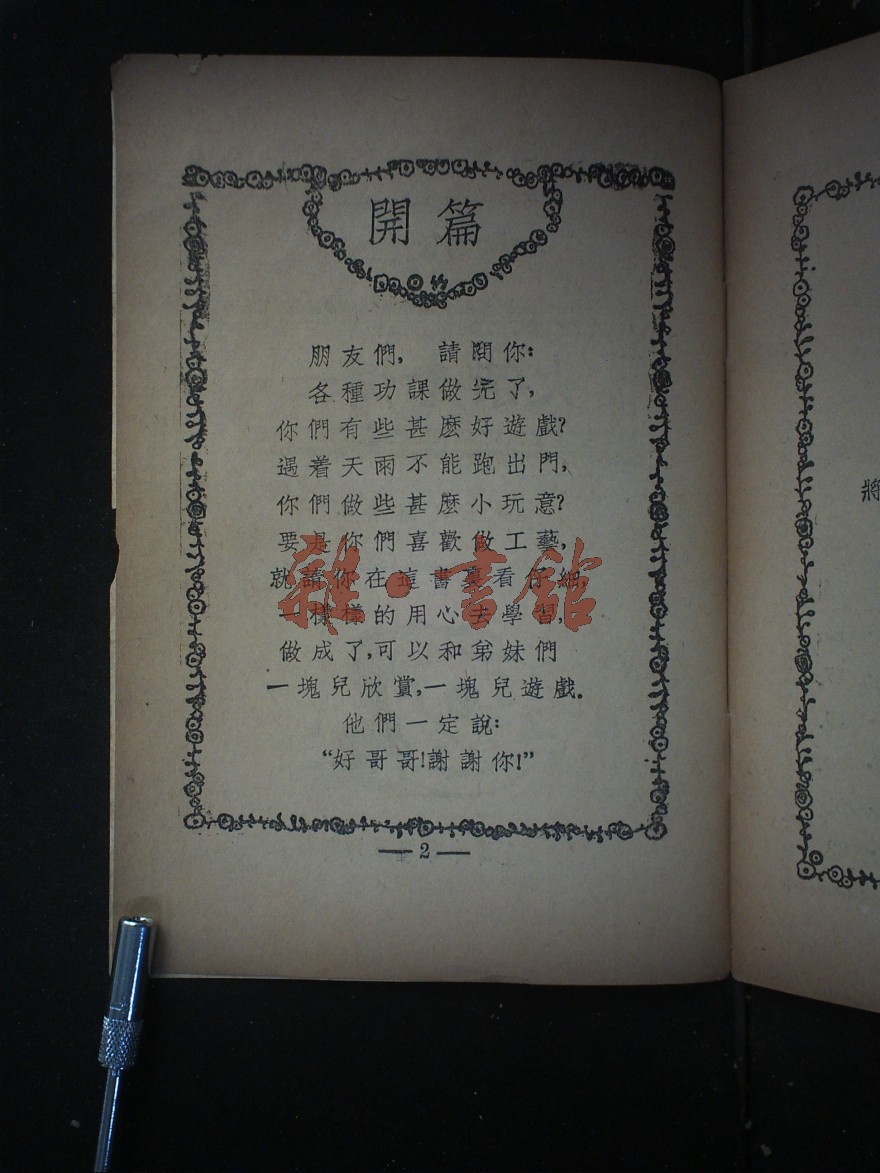 開篇
朋友們, 請問你:
各種功課做完了,
你們有些甚麽好遊戲?
遇着天雨不能跑出門,
你們做些甚麽小玩意?
要是你們喜歡做工藝,
就請你在這書裏看仔細,
一樣樣的用心去學習,
做成了,可以和弟妹們
一塊兒欣賞,一塊兒遊戲.
他們一定說:
“好哥哥!謝謝你!”
— 2 —
將
雜·書館